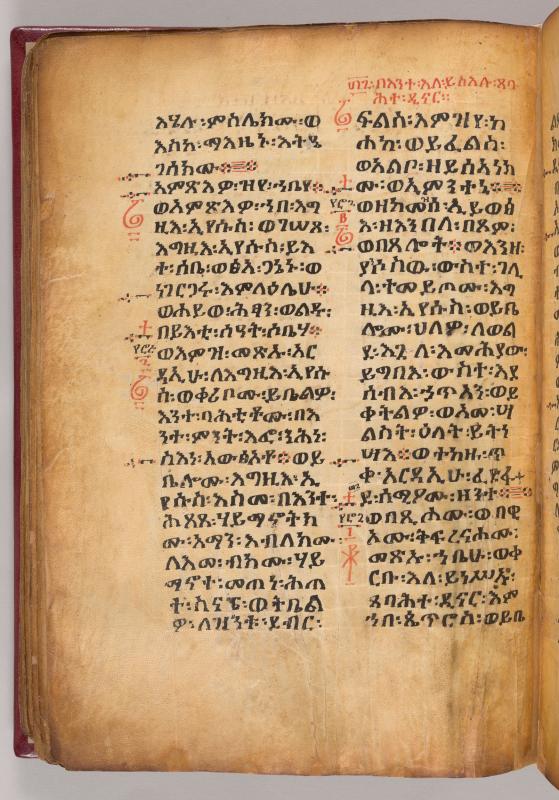 እሄሉ፡ምስሌክሙ፡ወ
እስከ፡ማእዜኑ፡እትዔ
ገሰክሙ፨
አምጽእዎ፡ዝየ፡ኀቤየ፨
ወአምጽእዎ፡ኀበ፡እግ
ዚእ፡ኢየሱስ፡ወገሠጾ፡
እግዚእ፡ኢየሱስ፡ይእ
ተ፡ሰቤ፡ወፅአ፡ጋኔኑ፡ወ
ነገርጋሩ፡እምላዕሌሁ፨
ወሐይወ፡ሕፃን፡ወልዱ፡
በይእቲ፡ሰዓት፡ሶቤሃ፨
ወእምዝ፡መጽኡ፡አር
ዳኢሁ፡ለእግዚእ፡ኢየሱ
ስ፡ወቀሪቦሙ፡ይቤልዎ፡
እንተ፡ባሕቲቶሙ፡በእ
ንተ፡ምንት፡እሞ፡ንሕነ፡
ስእነ፡አውፅኦቶ፨ወይ
ቤሎሙ፡እግዚእ፡ኢ
የሱስ፡እስመ፡በእንተ፡
ሕጸጸ፡ሃይማኖትክ
ሙ፡አማን፡እብለክሙ፡
ለእመ፡ብክሙ፡ሃይ
ማኖተ፡መጠነ፡ሕጠ
ተ፡ስናፔ፡ወትቤል
ዎ፡ለዝንቱ፡ደብር፡
በእንተ፡እለ፡ይስእሉ፡ጸባ
ሕተ፡ዲናር፡፡
ፍልስ፡እምዝየ፡ከ
ሐከ፡ወይፈልስ፡
ወአልቦ፡ዘይሰአነክ
ሙ፡ወኢምንተኒ፨
ወዘከመሰ፡ኢይወፅ
እ፡ዘእንበለ፡በጾም፡
ወበጸሎት፨መእንዘ፡
ያንሶስው፡ውስተ፡ገሊ
ላ፡ተመይጦሙ፡እግ
ዚእ፡ኢየሱስ፡ወይቤ
ሎሙ፡ሀለዎ፡ለወል
ደ፡እጓለ፡እመሕያው፡
ይግባእ፡ውስተ፡እደ
ሰብእ፡ኃጥአን፡ወይ
ቀትልዎ፡ወእመ፡ሣ
ልስት፡ዕለት፡ይትነ
ሣእ፨ወተከዙ፡ጥ
ቀ፡አርዳኢሁ፡ፈድፋ
ደ፡ሰሚዖሙ፡ዘንተ፨
ወበጺሖሙ፡ወበዊ
ኦሙ፡ቅፍረናሖሙ፡
መጽኡ፡ኀቤሁ፡ወቀ
ርቡ፡እለ፡ይነሥኡ፡
ጸባሕተ፡ዲናር፡እም
ኀበ፡ጴጥሮስ፡ወይቤ